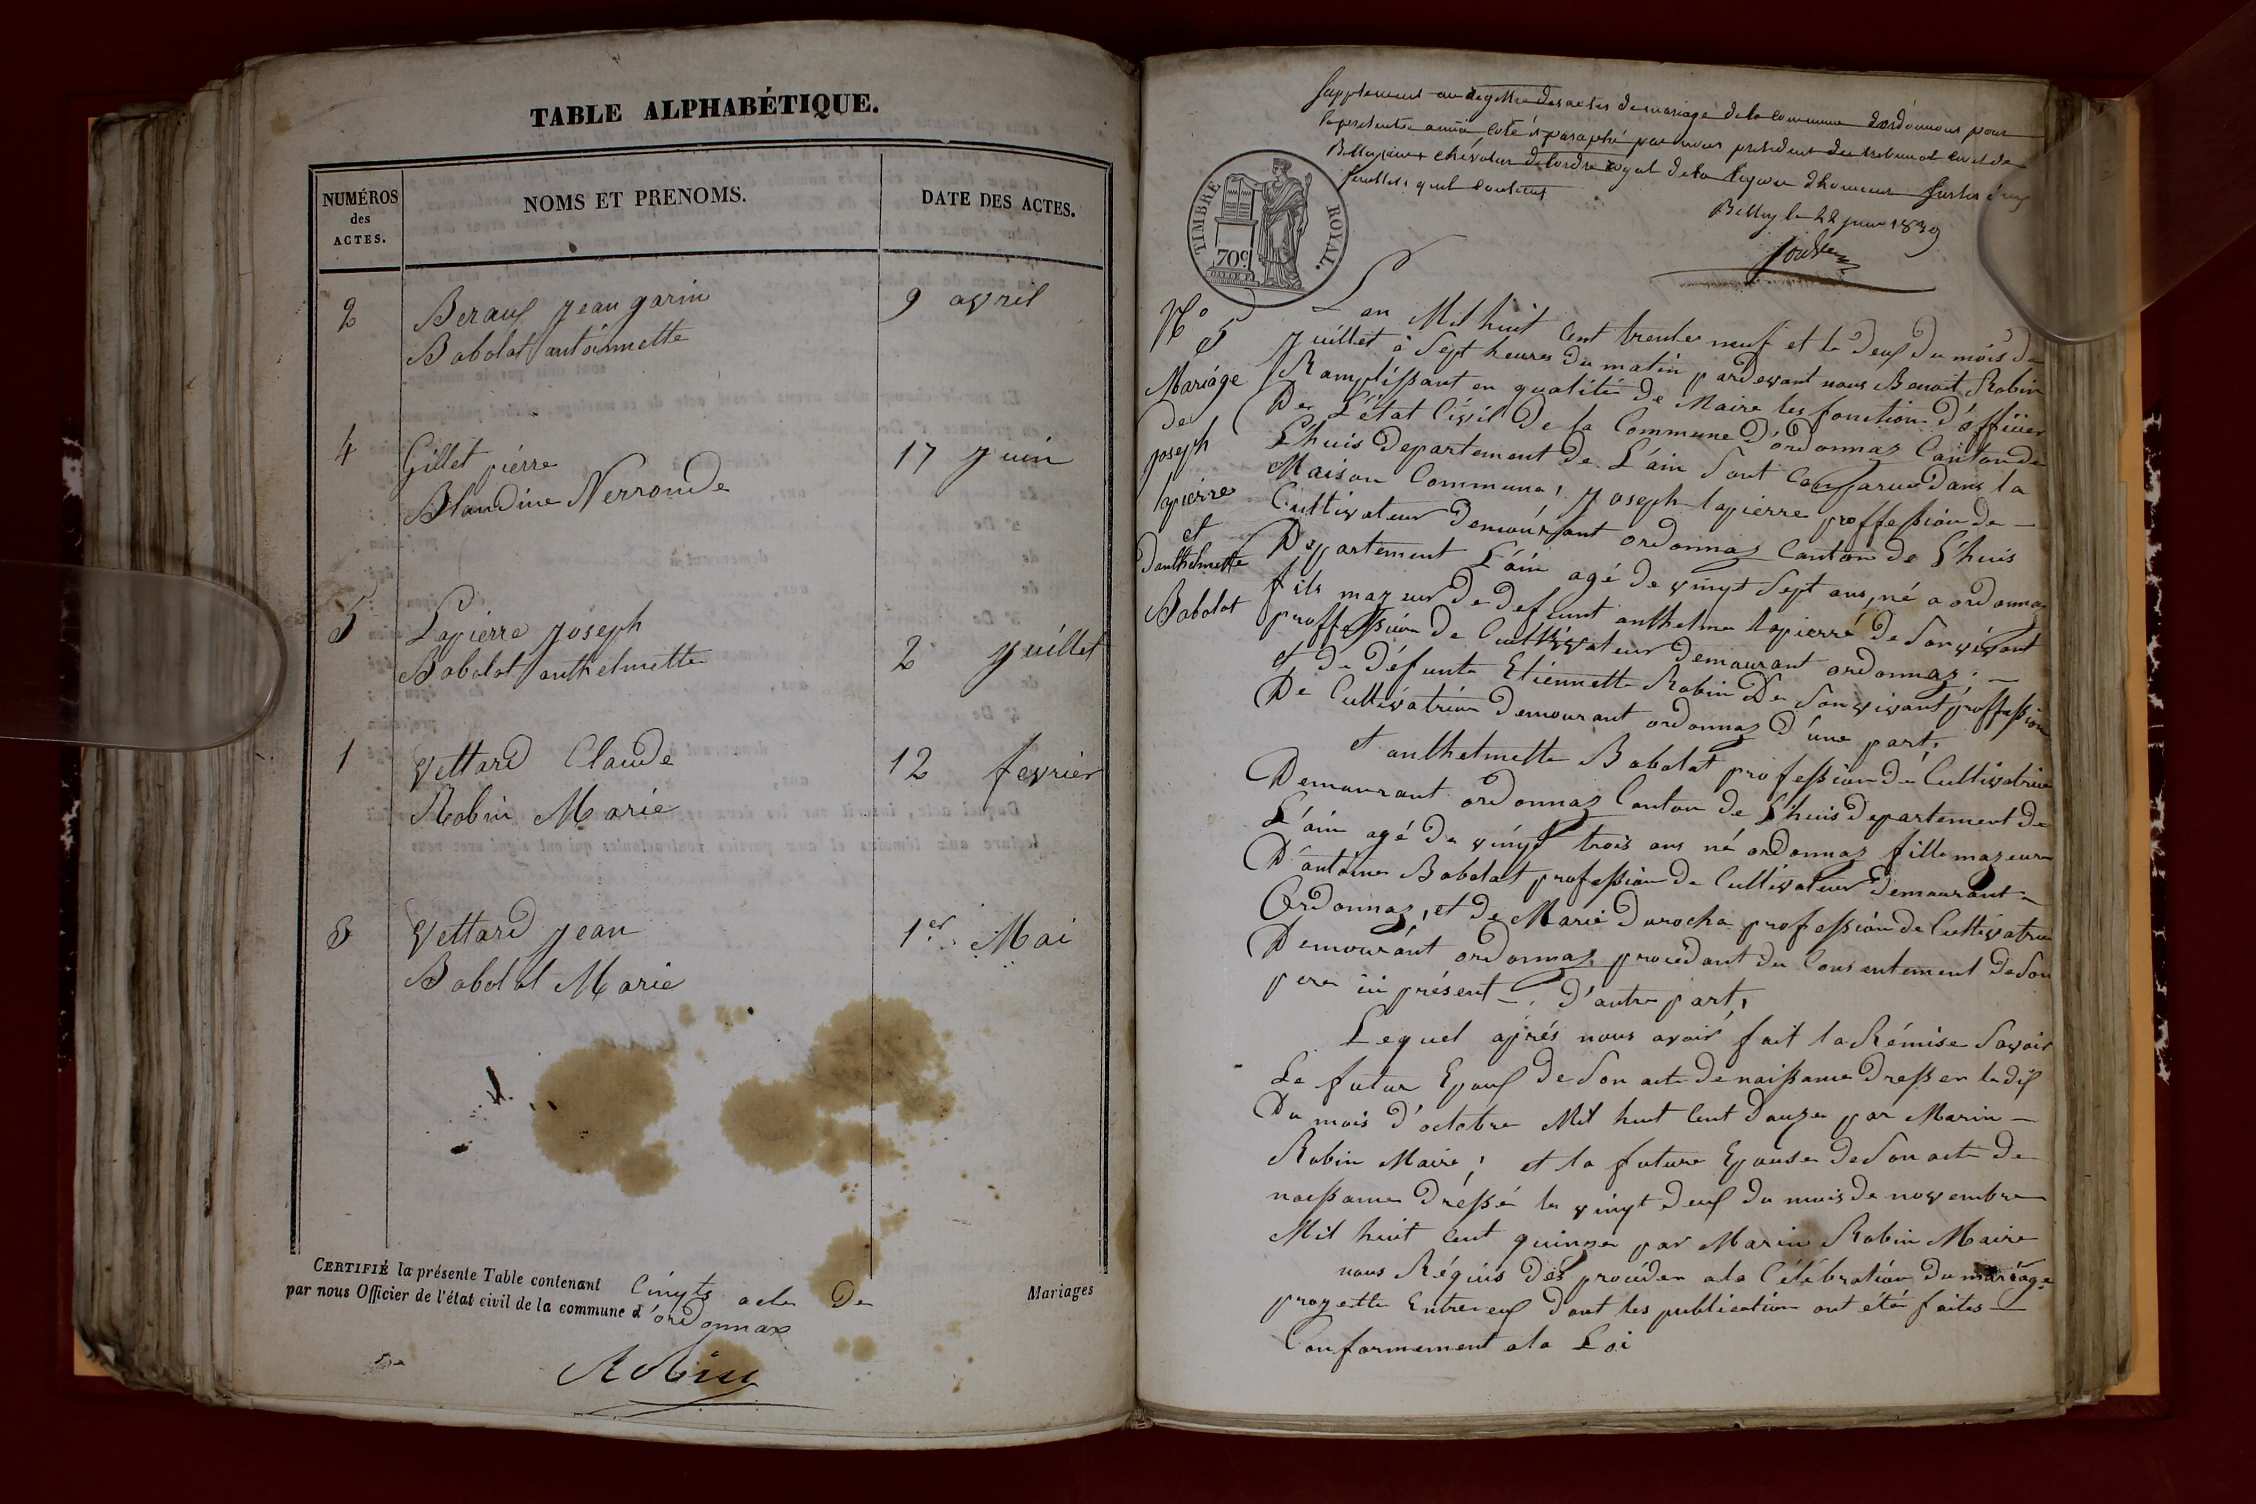 TABLE ALPHABÉTIQUE.
NUMÉROS des ACTES.
NOMS ET PRENOMS.
DATE DES ACTES.
2 Beraux jean garin 9 avril
Babolat antoinnette
4 Gillet pierre 17 juin
Blandine Nerronde
5 Lapierre joseph 2 juillet
Babolat anthelmette
1 Vettard Claude 12 fevrier
Robin Marie
3 Vettard jean 1er Mai
Babolat Marie
CERTIFIÉ la présente Table contenant Cinqts acte De Mariages
par nous Officier de l'état civil de la commune d'ordonnax
Robin
Supplement au Registre des actes de mariage de la commune dordonnaz pour
la presente année coté et paraphé par nous president du tribunal civil de
Belley chevalier de lordre royal de la legion dhonneur sur les deux
feuillets quil contient
Belley le 22 juin 1839
TIMBRE ROYAL.
70c
No 5
Mariage
de
joseph
lapierre
et
Danthelmette
Babolat
L'an Mil huit Cent trente neuf et le Deux Du mois de
juillet à Sept heures Du matin pardevant nous Benoit Robin
Ramplissant en qualité de Maire les fonction D'officier
De L'état Civil De la Commune D'ordonnaz Canton de
L'huis Departement De L'ain Sont Comparus Dans la
Maison Commune, Joseph lapierre proffession de —
Cultivateur Demourant ordonnaz Canton de L'huis
Departement L'ain agé De vingt Sept ans, né a ordonnaz
fils mazeur De Defunt anthelme lapierre De Son vivant
proffession De Cultivateur Demaurant ordonnaz, —
et De Défunte Etiennette Robin De Son vivant proffession
De Cultivatrice Demourant ordonnaz D'une part,
et anthelmette Babolat profession De Cultivatrice
Demaurant ordonnaz Canton De L'huis Departement De
L'ain agé De vingt trois ans né ordonnaz fille mazeure
D'antoine Babolat profession De Cultivateur Demaurant
Ordonnaz, et De Marie Durocha profession De Cultivatrice
Demourant ordonnaz procedant du Consentement De Son
pere ici présent —. D'autre part,
Lequel après nous avoir fait la Rémise Savoir
Le futur Epoux De Son acte De naissance Dresser le dix
Du mois D'octobre Mil huit Cent Douze par Marin —
Robin Maire, et la future Epouse De Son acte De
naissance Dréssé le vingt Deux Du mois De novembre
Mil huit Cent quinze par Marin Robin Maire
nous Réquis Dés proceder a la Célébration Du mariage
prozette Entre eux Dont les publication ont été faites —
Conformement a la Loi